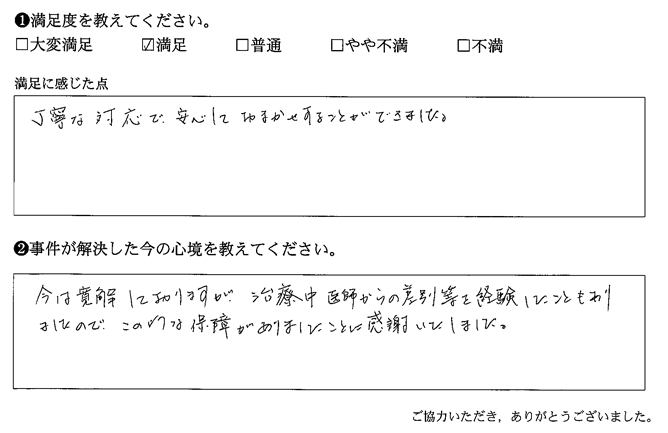 ❶満足度を教えてください。
□大変満足 ☑満足 □普通 □やや不満 □不満
満足に感じた点
丁寧な対応で、安心しておまかせすることができました。
❷事件が解決した今の心境を教えてください。
今は寛解しておりますが、治療中医師からの差別等を経験したこともあり
ましたので、この様な保障がありましたことに感謝いたしました。
ご協力いただき，ありがとうございました。